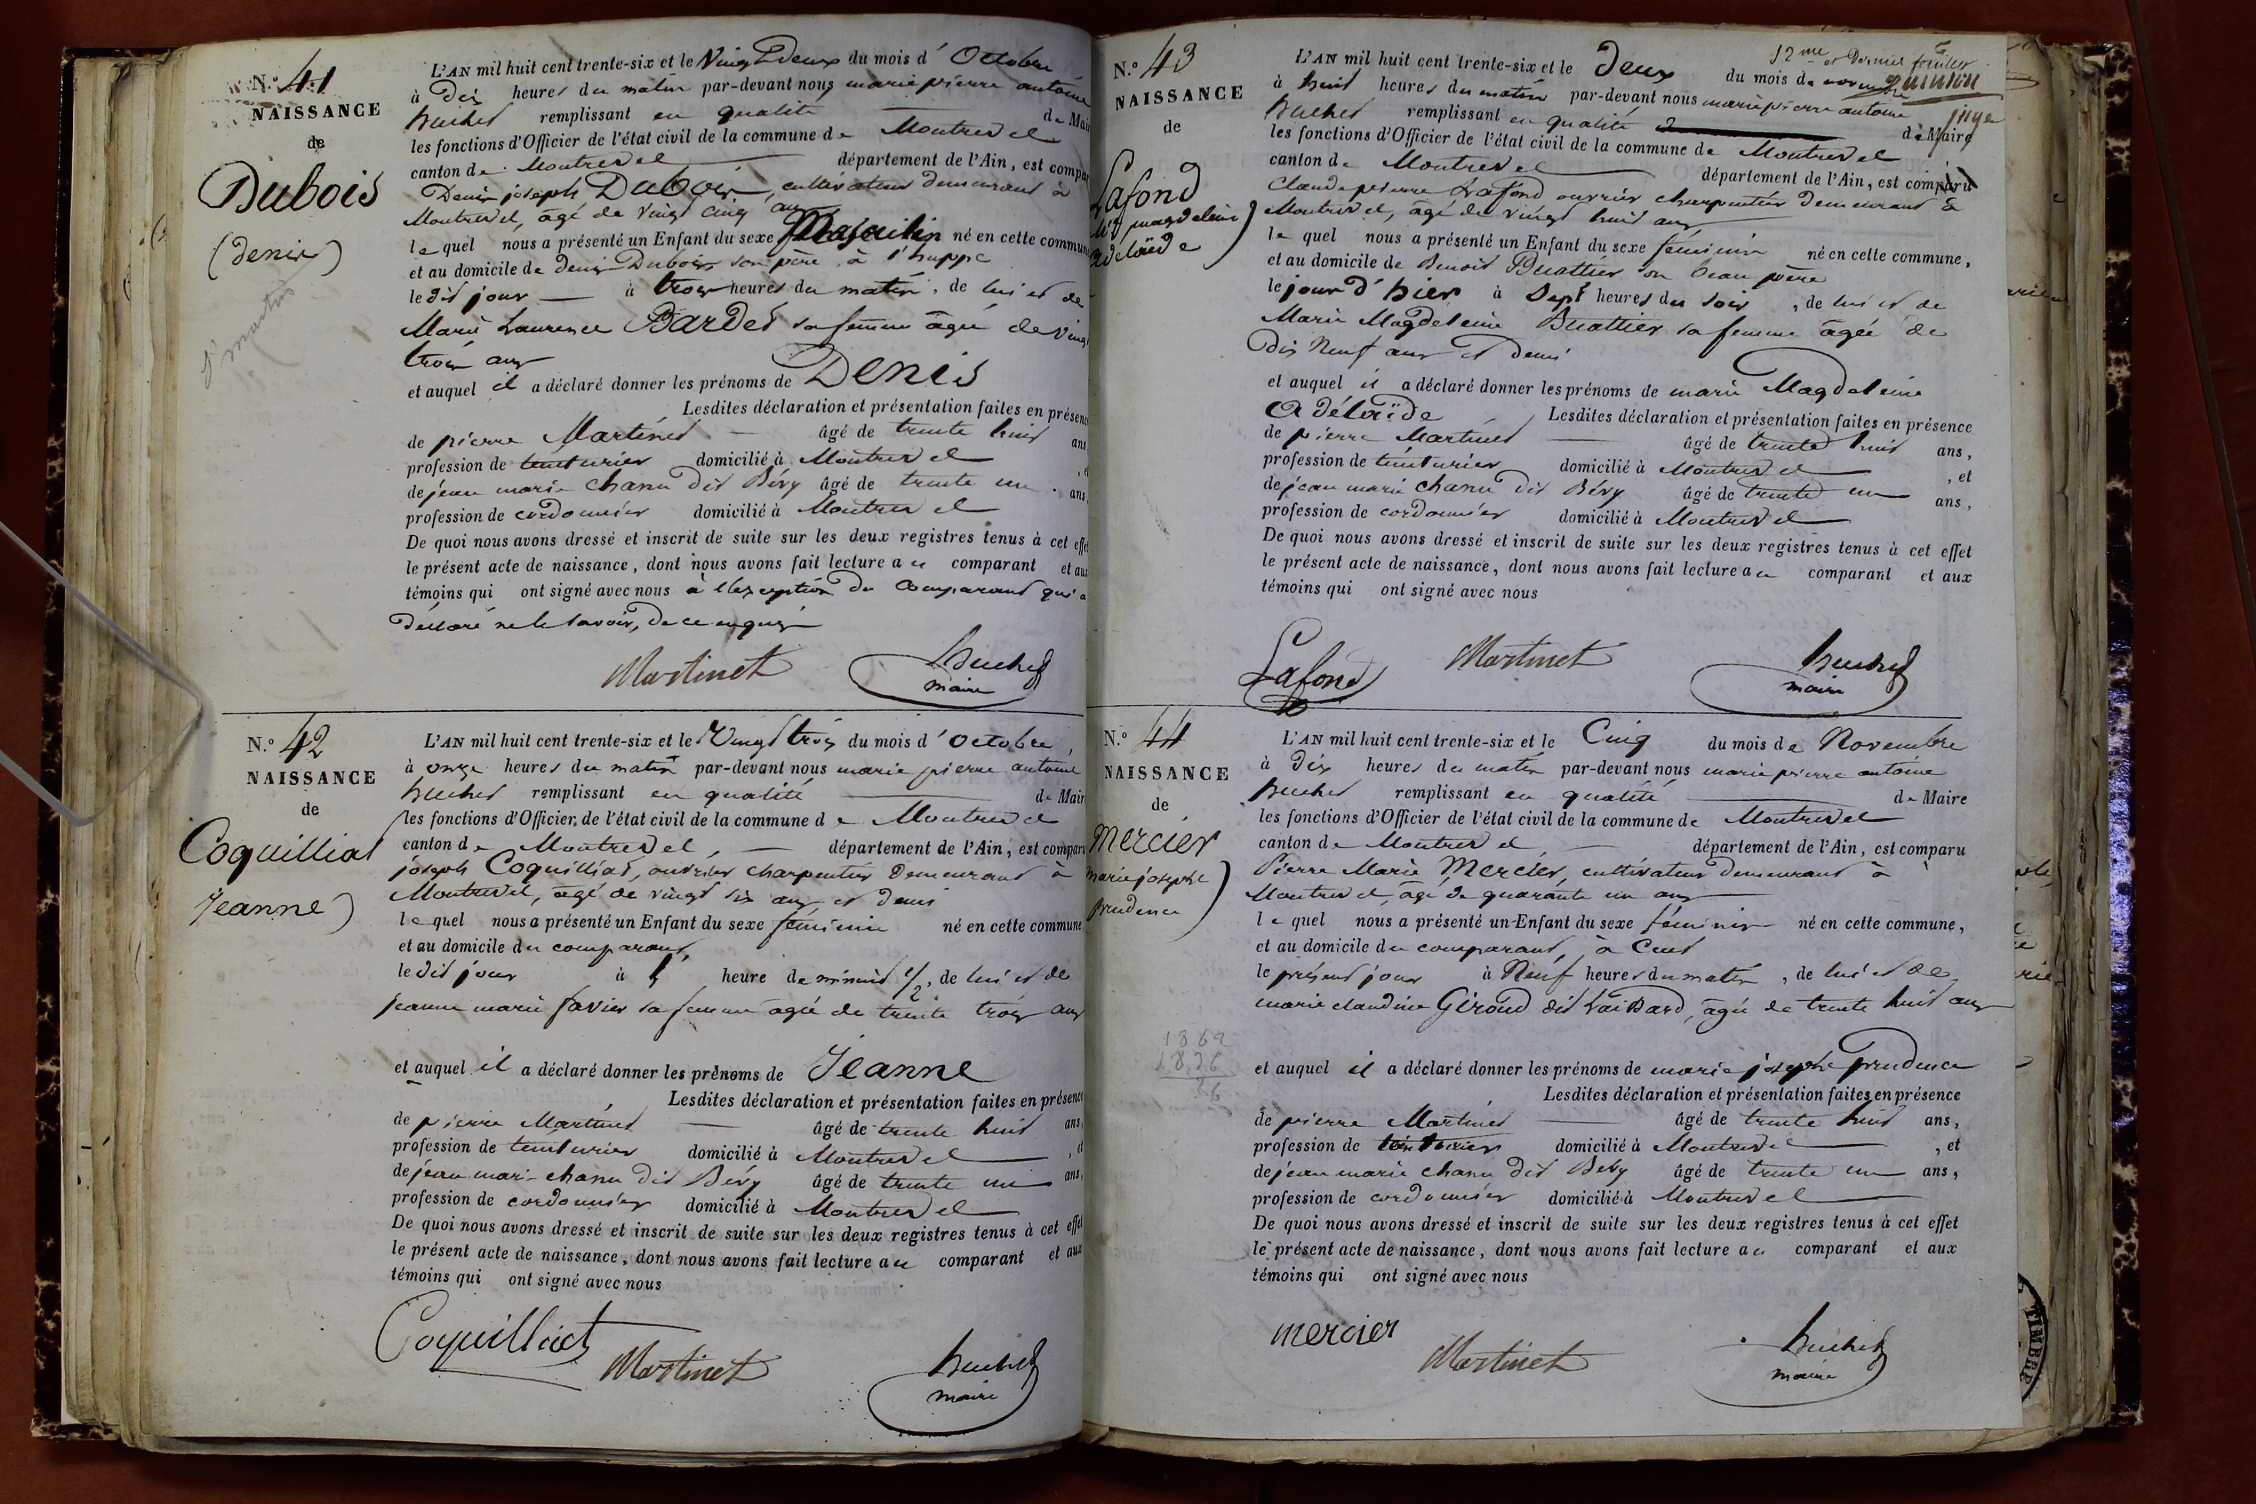 N.º 41
NAISSANCE
de
Dubois
(denis)
L'AN mil huit cent trente-six et le Vingt Deux du mois d' Octobre
à Dix heures du matin par-devant nous marie pierre antoine
buchet remplissant en qualité de Mair
les fonctions d'Officier de l'état civil de la commune de Montrevel
canton de Montrevel département de l'Ain, est compar
Denis joseph Dubois, cultivateur demeurant à
Montrevel, âgé de vingt cinq ans
le quel nous a présenté un Enfant du sexe Masculin né en cette commune
et au domicile de denis Dubois son père, à l'huppe
le dit jour à trois heures du matin, de lui et de
Marie Laurence Bardet sa femme âgée de vingt
trois ans
et auquel il a déclaré donner les prénoms de Denis
Lesdites déclaration et présentation faites en présence
de pierre Martinet âgé de trente huit ans
profession de teinturier domicilié à Montrevel, et
de jean marie Chanu dit Bévy âgé de trente un ans,
profession de cordonnier domicilié à Montrevel
De quoi nous avons dressé et inscrit de suite sur les deux registres tenus à cet effet
le présent acte de naissance, dont nous avons fait lecture au comparant et aux
témoins qui ont signé avec nous à l'exception du comparant qui a
déclaré ne le savoir, de ce enquis
Martinet buchet
maire
N.º 42
NAISSANCE
de
Coquilliat
Jeanne)
L'AN mil huit cent trente-six et le Vingt trois du mois d' Octobre,
à onze heures du matin par-devant nous marie pierre antoine
buchet remplissant en qualité de Mair
les fonctions d'Officier de l'état civil de la commune de Montrevel
canton de Montrevel, département de l'Ain, est comparu
joseph Coquilliat, ouvrier charpentier demeurant à
Montrevel, âgé de vingt six ans et demi
le quel nous a présenté un Enfant du sexe féminin né en cette commune
et au domicile du comparant,
le dit jour à heure de minuit 1/2, de lui et de
jeanne marie favier sa femme âgée de trente trois ans
et auquel il a déclaré donner les prénoms de Jeanne
Lesdites déclaration et présentation faites en présence
de pierre Martinet âgé de trente huit ans,
profession de teinturier domicilié à Montrevel, et
de jean marie chanu dit Bévy âgé de trente un ans,
profession de cordonnier domicilié à Montrevel
De quoi nous avons dressé et inscrit de suite sur les deux registres tenus à cet effet
le présent acte de naissance, dont nous avons fait lecture au comparant et aux
témoins qui ont signé avec nous
Coquilliat
Martinet buchet
maire
12me et Dernier feuillet
N.º 43
NAISSANCE
de
Lafond
Mie magdeleine
adélaïde)
L'AN mil huit cent trente-six et le Deux du mois de novembre
à huit heures du matin par-devant nous marie pierre antoine
juge
buchet remplissant en qualité de Maire
les fonctions d'Officier de l'état civil de la commune de Montrevel
canton de Montrevel département de l'Ain, est comparu
Claude pierre Lafond ouvrier charpentier demeurant à
Montrevel, âgé de vingt huit ans
le quel nous a présenté un Enfant du sexe féminin né en cette commune,
et au domicile de Benoit Buattier son beau père
le jour d'hier à Sept heures du soir, de lui et de
Marie Magdeleine Buattier sa femme âgée de
Dix Neuf ans et demi
et auquel il a déclaré donner les prénoms de marie Magdeleine
Adélaïde Lesdites déclaration et présentation faites en présence
de pierre Martinet âgé de trente huit ans,
profession de teinturier domicilié à Montrevel, et
de jean marie chanu dit Bévy âgé de trente un ans,
profession de cordonnier domicilié à Montrevel
De quoi nous avons dressé et inscrit de suite sur les deux registres tenus à cet effet
le présent acte de naissance, dont nous avons fait lecture au comparant et aux
témoins qui ont signé avec nous
Lafond Martinet buchet
maire
N.º 44
NAISSANCE
de
Mercier
Marie josephe
prudence)
1862
1836
26
L'AN mil huit cent trente-six et le Cinq du mois de Novembre
à dix heures du matin par-devant nous marie pierre antoine
buchet remplissant en qualité de Maire
les fonctions d'Officier de l'état civil de la commune de Montrevel
canton de Montrevel, département de l'Ain, est comparu
Pierre Marie Mercier, cultivateur demeurant à
Montrevel, âgé de quarante un ans
le quel nous a présenté un Enfant du sexe féminin né en cette commune,
et au domicile du comparant, à Cuet
le présent jour à Neuf heures du matin, de lui et de
marie claudine Giroud dit Vaissard, âgée de trente huit ans
et auquel il a déclaré donner les prénoms de marie josephe prudence
Lesdites déclaration et présentation faites en présence
de pierre Martinet âgé de trente huit ans,
profession de teinturier domicilié à Montrevel, et
de jean marie chanu dit Bévy âgé de trente un ans,
profession de cordonnier domicilié à Montrevel
De quoi nous avons dressé et inscrit de suite sur les deux registres tenus à cet effet
le présent acte de naissance, dont nous avons fait lecture au comparant et aux
témoins qui ont signé avec nous
mercier Martinet buchet
maire
TIMBRE